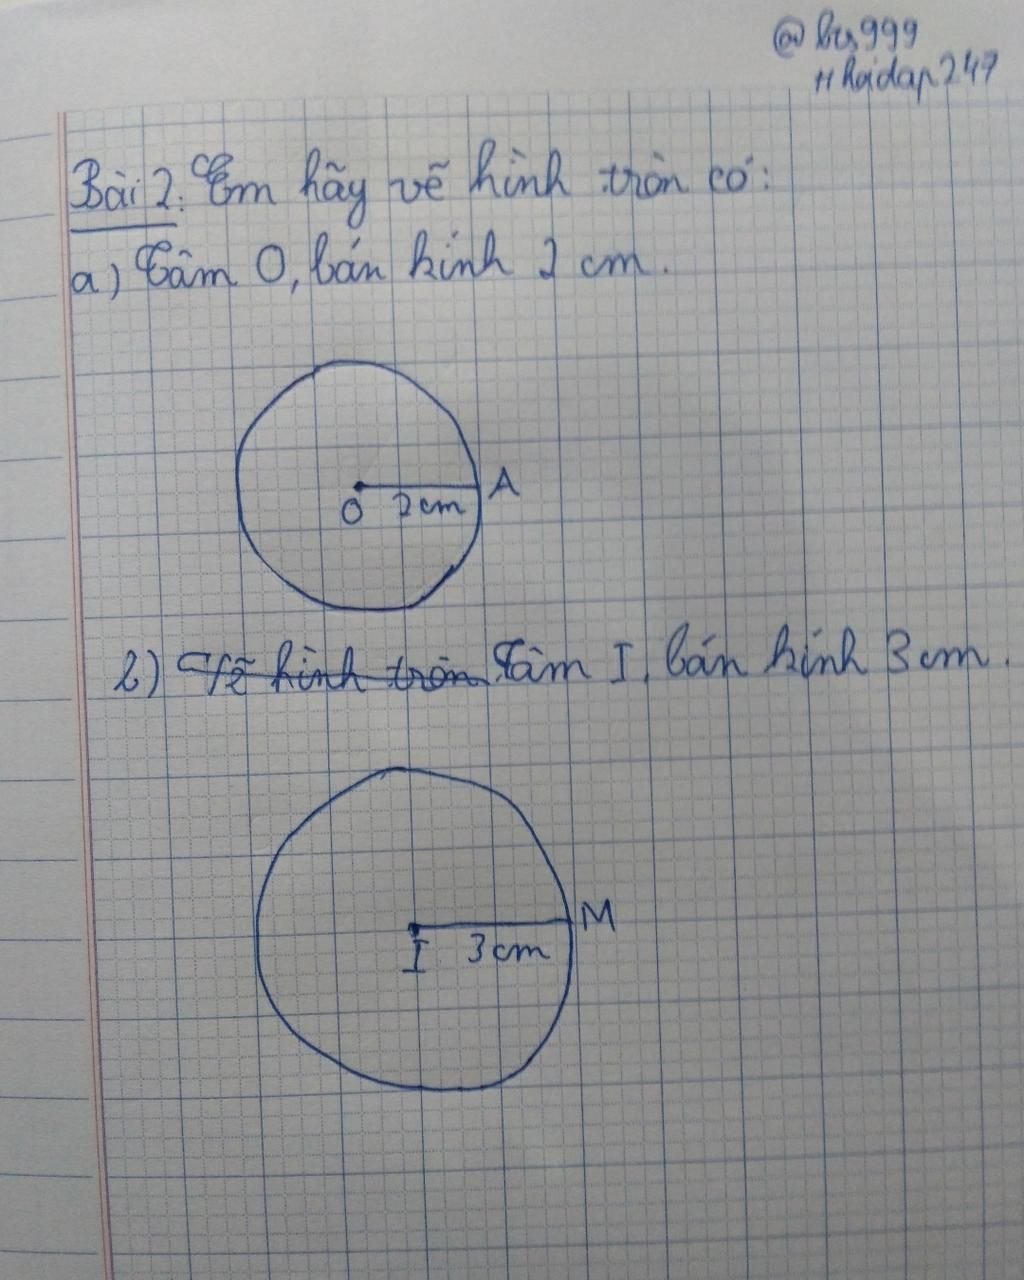 #hoidap247
Bài 2: Em hãy vẽ hình tròn có:
a) Tâm O, bán kính 2 cm.
O 2cm A
b) Vẽ hình tròn Tâm I, bán kính 3 cm.
I 3cm M